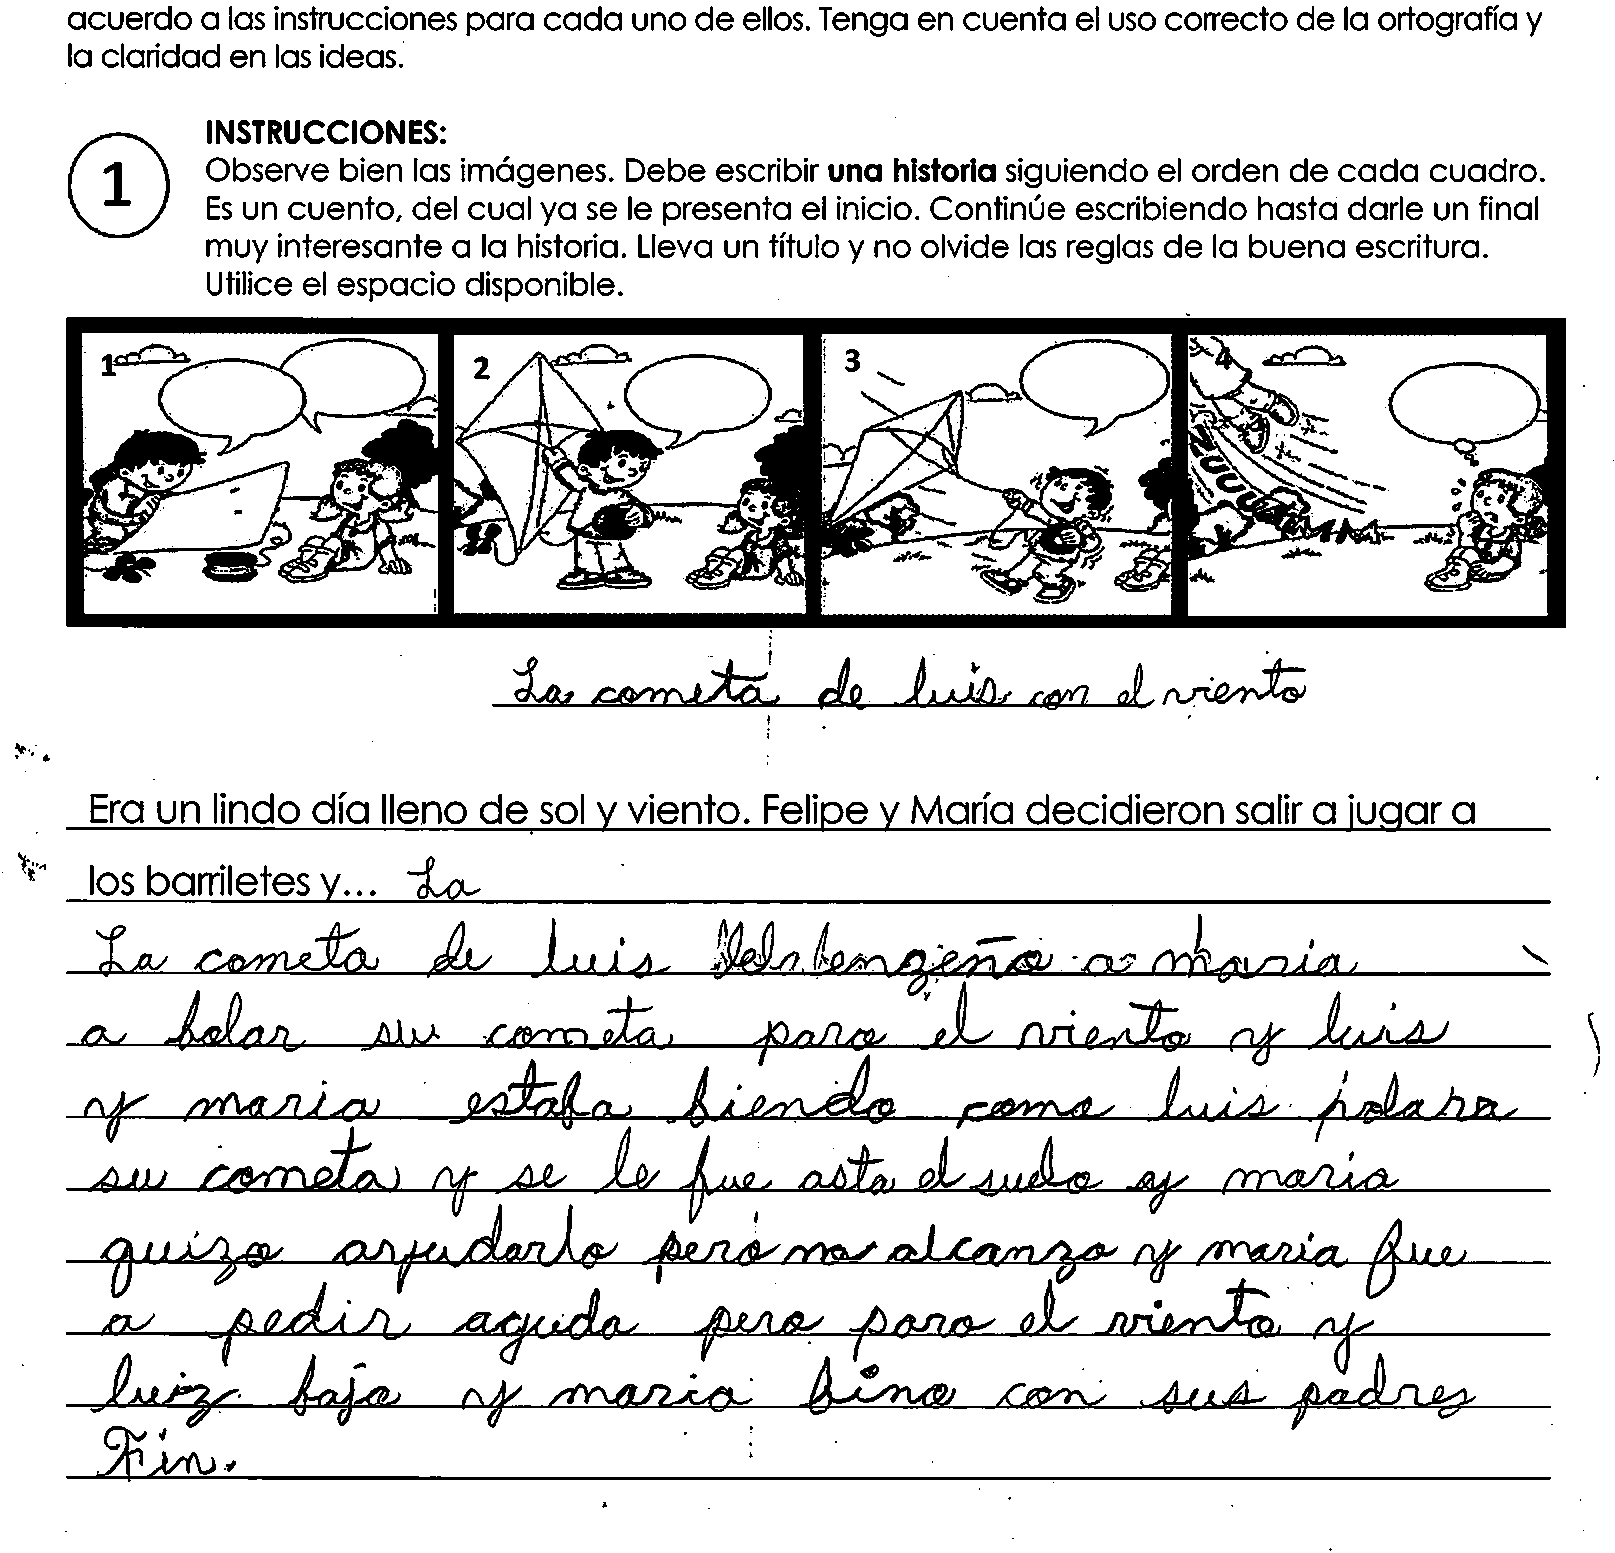 acuerdo a las instrucciones para cada uno de ellos. Tenga en cuenta el uso correcto de la ortografía y
la claridad en las ideas.
INSTRUCCIONES:
1
Observe bien las imágenes. Debe escribir una historia siguiendo el orden de cada cuadro.
Es un cuento, del cual ya se le presenta el inicio. Continúe escribiendo hasta darle un final
muy interesante a la historia. Lleva un título y no olvide las reglas de la buena escritura.
Utilice el espacio disponible.
1 2 3 4
ZUUUUMMM
La cometa de luis con el viento
Era un lindo día lleno de sol y viento. Felipe y María decidieron salir a jugar a
los barriletes y... La
La cometa de luis a maria
a bolar su cometa paro el viento y luis
y maria estaba biendo como luis
su cometa y se le fue asta el suelo y maria
quizo ayudarlo pero no alcanzo y maria fue
a pedir aguda pero paro el viento y
luiz bajo y maria bino con sus padres
Fin.